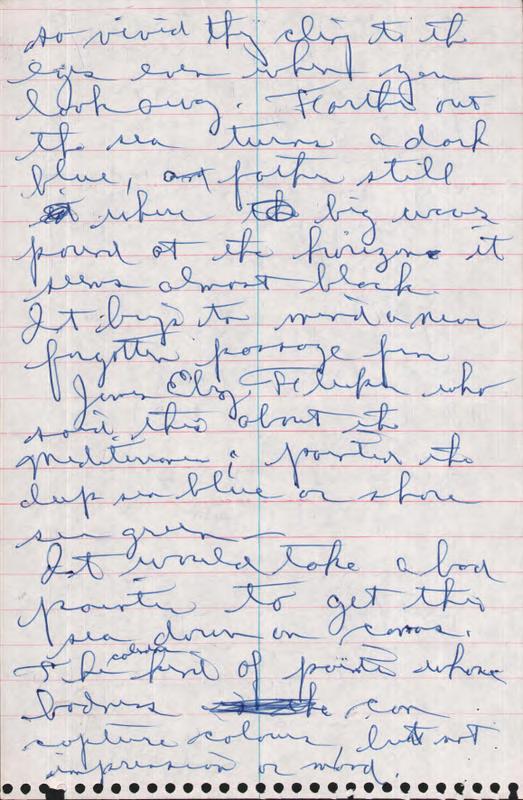 so vivid they cling to the
eyes even when you
look away. Farther out
the sea turns a dark
blue, and farther still
where big waves
pound at the horizon it
seems almost black.
It brings to mind a never
forgotten passage from
James Elroy Flecker who
said this about the
Mediterranean; painter the
deep sea blue or shore
sea green —
It would take a bad
painter to get this
sea down on canvas.
The kind of painter whose
badness can
capture colours, but not
impression or mood.